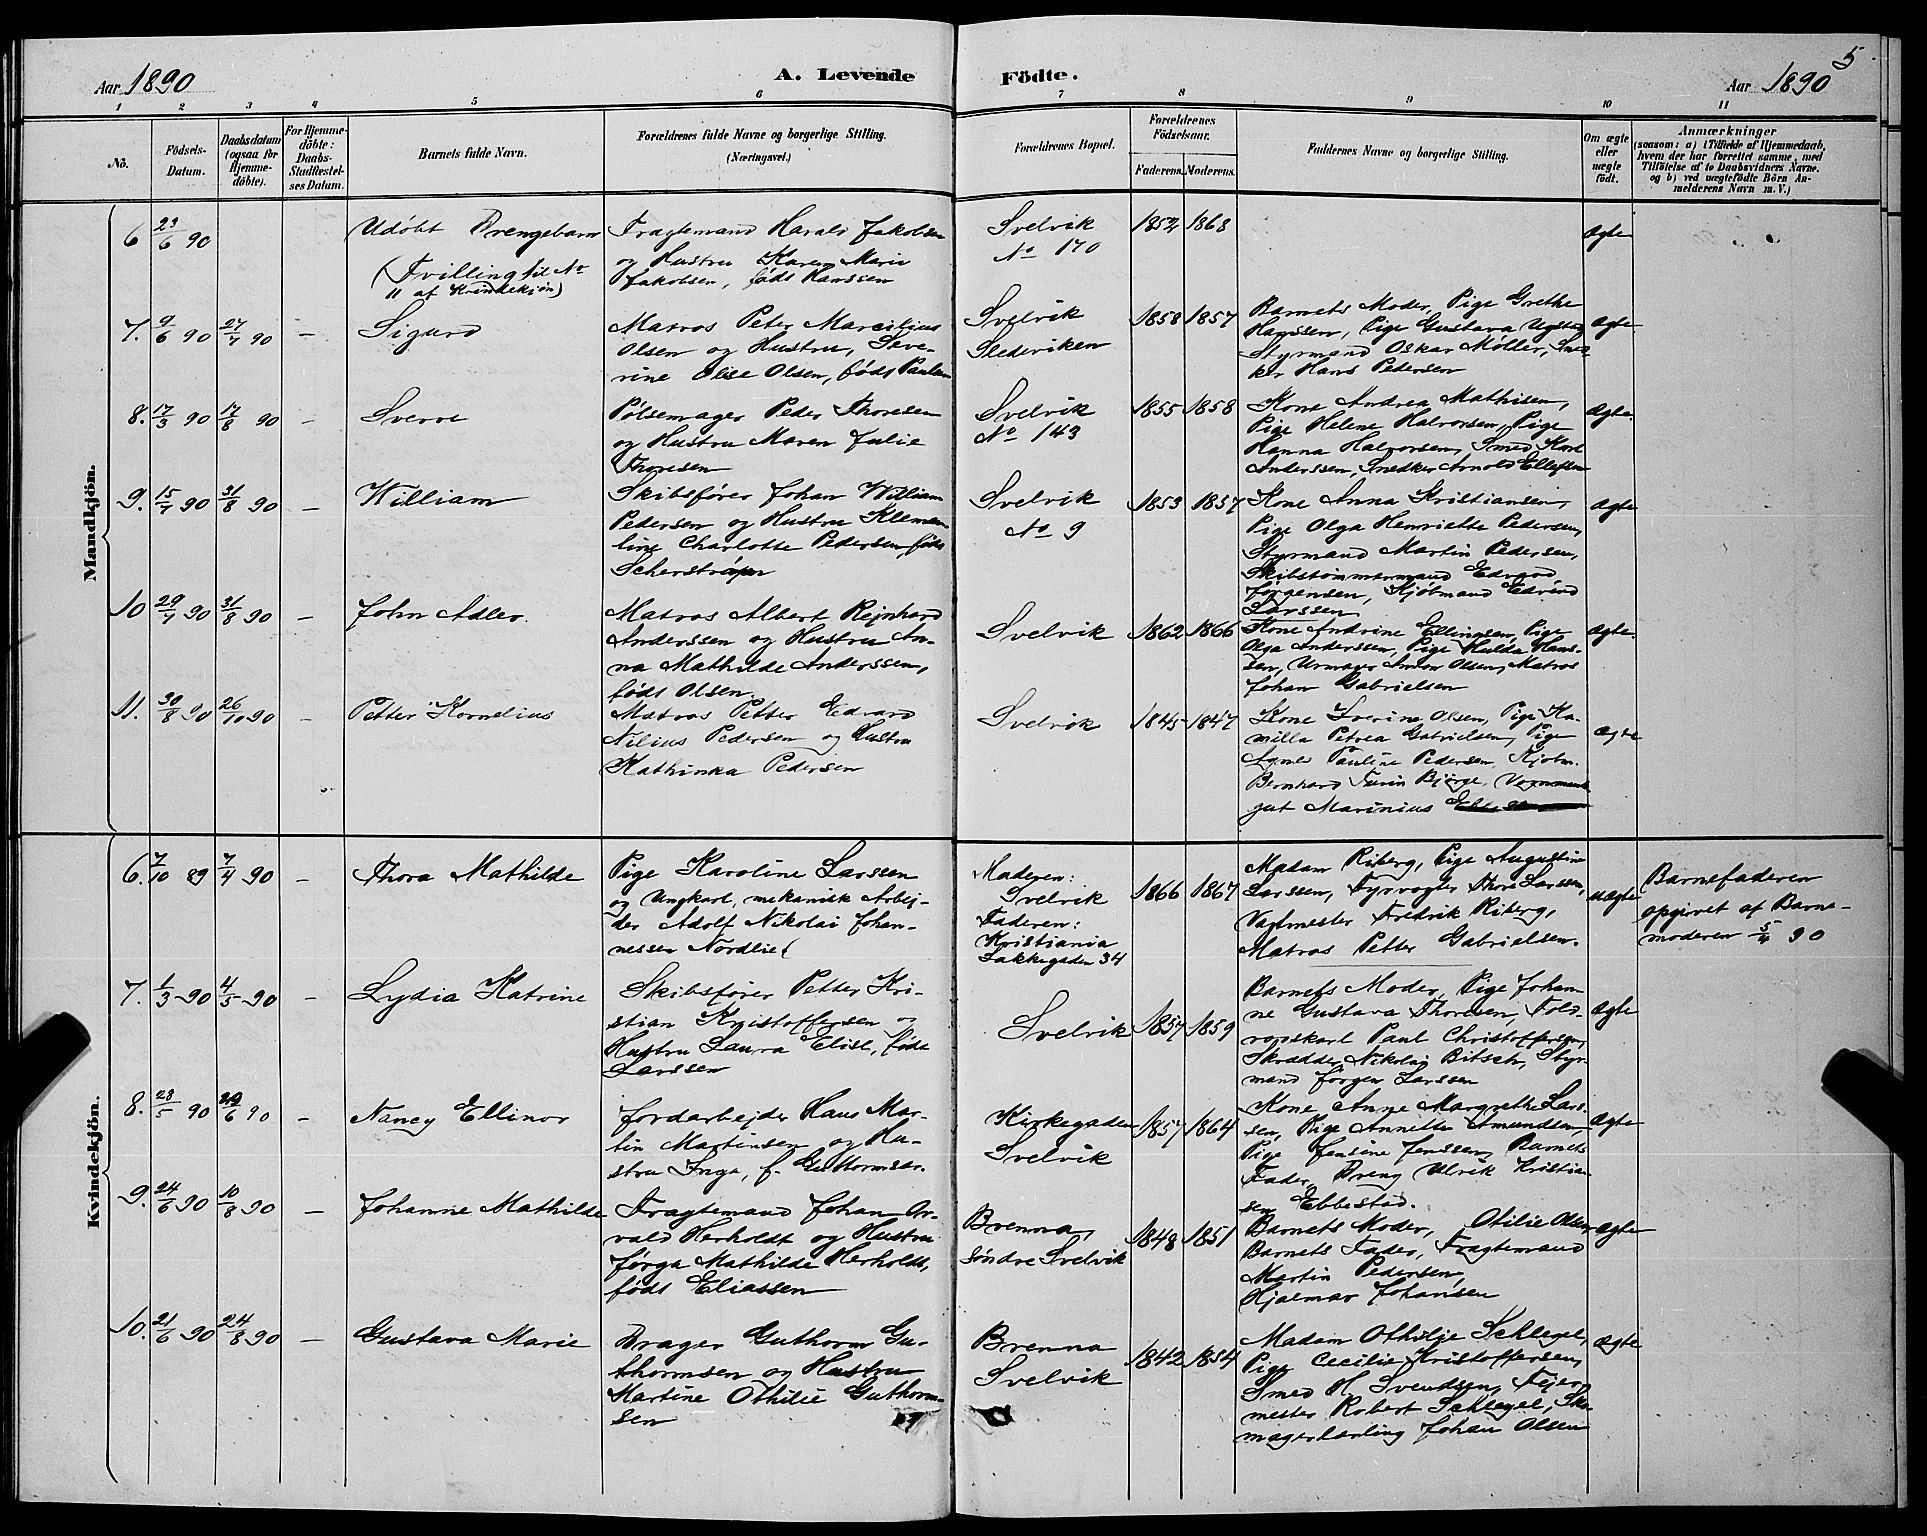 Aar 1890
A. Levende Födte.
Aar 1890
5
1 2 3 4 5 6 7 8 9 10 11
No.
Födsels-
Datum.
Daabsdatum
(ogsaa for
Hjemme-
döbte).
For Hjemme-
döbte:
Daabs-
Stadfestel-
ses Datum.
Barnets fulde Navn.
Forældrenes fulde Navne og borgerlige Stilling.
(Næringsvei.)
Forældrenes Bopæl.
Forældrenes
Födselsaar.
Faderens. Moderens.
Faddernes Navne og borgerlige Stilling.
Om ægte
eller
uægte
født.
Anmærkninger
(saasom: a) i Tilfælde af Hjemmedaab,
hvem der har forrettet samme, med
Tilföielse af to Daabsvidners Navne,
og b) ved uægtefödte Börn An-
melderens Navn m. V.)
Mandkjön.
6 23/6 90
Udöbt Drengebarn
(Tvilling til No
11 af Kvindekjön)
Fragtemand Harald Jakobsen
og Hustru Karen Marie
Jakobsen, född Hanssen
Svelvik
No 170
1852 1868
Ægte
7. 9/6 90 27/7 90 –
Sigurd
Matros Peter Marcilius
Olsen og Hustru, Seve-
rine Olse Olsen, född Paulsen
Svelvik
Slederiken
1858 1857
Barnets Moder, Pige Grethe
Hanssen, Pige Gustava
Styrmand Oskar Møller, Sned-
ker Hans Pedersen
Ægte
8. 17/3 90 17/8 90 –
Sverre
Pölsemager Peder Thoresen
og Hustru Maren Julie
Thoresen
Svelvik
No 143
1855 1858
Kone Andrea Mathisen,
Pige Helene Halvorsen, Pige
Hanna Halvorsen, Smed Karl
Anderssen, Snedker Arnold Ellefsen
Ægte.
9. 15/7 90 31/8 90 –
William
Skibsfører Johan William
Pedersen og Hustru Klemen-
tine Charlotte Pedersen, född
Svelvik
No 9
1853 1857
Kone Anna Kristiansen,
Pige Olga Henriette Pedersen,
Styrmand Martin Pedersen,
Skibstömmermand Edvard
Jørgensen, Kjøbmand Edvind
Larssen
Ægte
10 29/7 90 31/8 90 –
John Adler.
Matros Albert Rejnhard
Anderssen og Hustru An-
na Mathilde Anderssen,
född Olsen.
Svelvik
1862 1866
Kone Andrine Ellingsen, Pige
Olga Anderssen, Pige Hulda Hans-
sen, Urmager Anton Olsen, Matros
Johan Gabrielsen
Ægte.
11. 30/8 90 26/10 90 –
Petter Kornelius
Matros Petter Edvard
Nilius Pedersen og Hustru
Kathinka Pedersen
Svelvik
1845 1847
Kone Severine Olsen, Pige Ka-
milla Petrea Gabrielsen, Pige
Agnes Pauline Pedersen, Kjøbm.
Bernhard Bjørge,
gut Marinius
Ægte
Kvindekjön.
6. 7/10 89 7/4 90 –
Thora Mathilde
Pige Karoline Larssen
og Ungkarl, mekanisk Arbej-
der Adolf Nikolai Johan-
nessen Nordlie
Moderen:
Svelvik
Faderen:
Kristiania
Lakkegaden 34
1866 1867
Madam Riberg, Pige Augustine
Larssen, Fyrvogter Thore Larssen,
Vagtmester Fredrik Riberg,
Matros Petter Gabrielsen.
uægte
Barnefaderen
opgivet af Barne-
moderen 5/4 90
7. 1/3 90 4/5 90 –
Lydia Katrine
Skibsfører Petter Kri-
stian Kristoffersen og
Hustru Laura Elise, född
Larssen
Svelvik
1857 1859
Barnets Moder, Pige Johan-
ne Gustava Thoresen, Told-
roerskarl Paul Christoffersen,
Skrædder Nikolaj Bitsch, Styr-
mand Jørgen Larssen
Ægte
8. 23/5 90 29/6 90 –
Nancy Ellinor
Jordarbejder Hans Mar-
tin Martinsen og Hu-
stru Inga, f. Guthormsen.
Kirkegaden
Svelvik
1857 1864
Kone Anne Margrethe Lars-
sen, Pige Annette Amundsen,
Pige Jensine Jenssen, Barnets
Fader, Dreng Ulrik Kristian-
sen Ebbestad.
Ægte
9. 24/6 90 10/8 90 –
Johanne Mathilde
Fragtemand Johan Ar-
vald Herholdt og Hustru
Jørga Mathilde Herholdt,
född Eliassen
Brenna,
söndre Svelvik
1848 1851
Barnets Moder, Otilie Olsen
Barnets Fader, Fragtemand
Martin Pedersen,
Hjalmar Johansen
Ægte
10. 21/6 90 24/8 90 –
Gustava Marie
Drager Guthorm Gu-
thormsen og Hustru
Martine Othilie Guthorm-
sen
Brenna
Svelvik
1842 1854
Madam Othilje Schlegel,
Pige Cecilie Kristoffersen,
Smed H. Svendsen, Fejer-
mester Robert Schlegel, Sko-
magerlærling Johan Olsen
Ægte